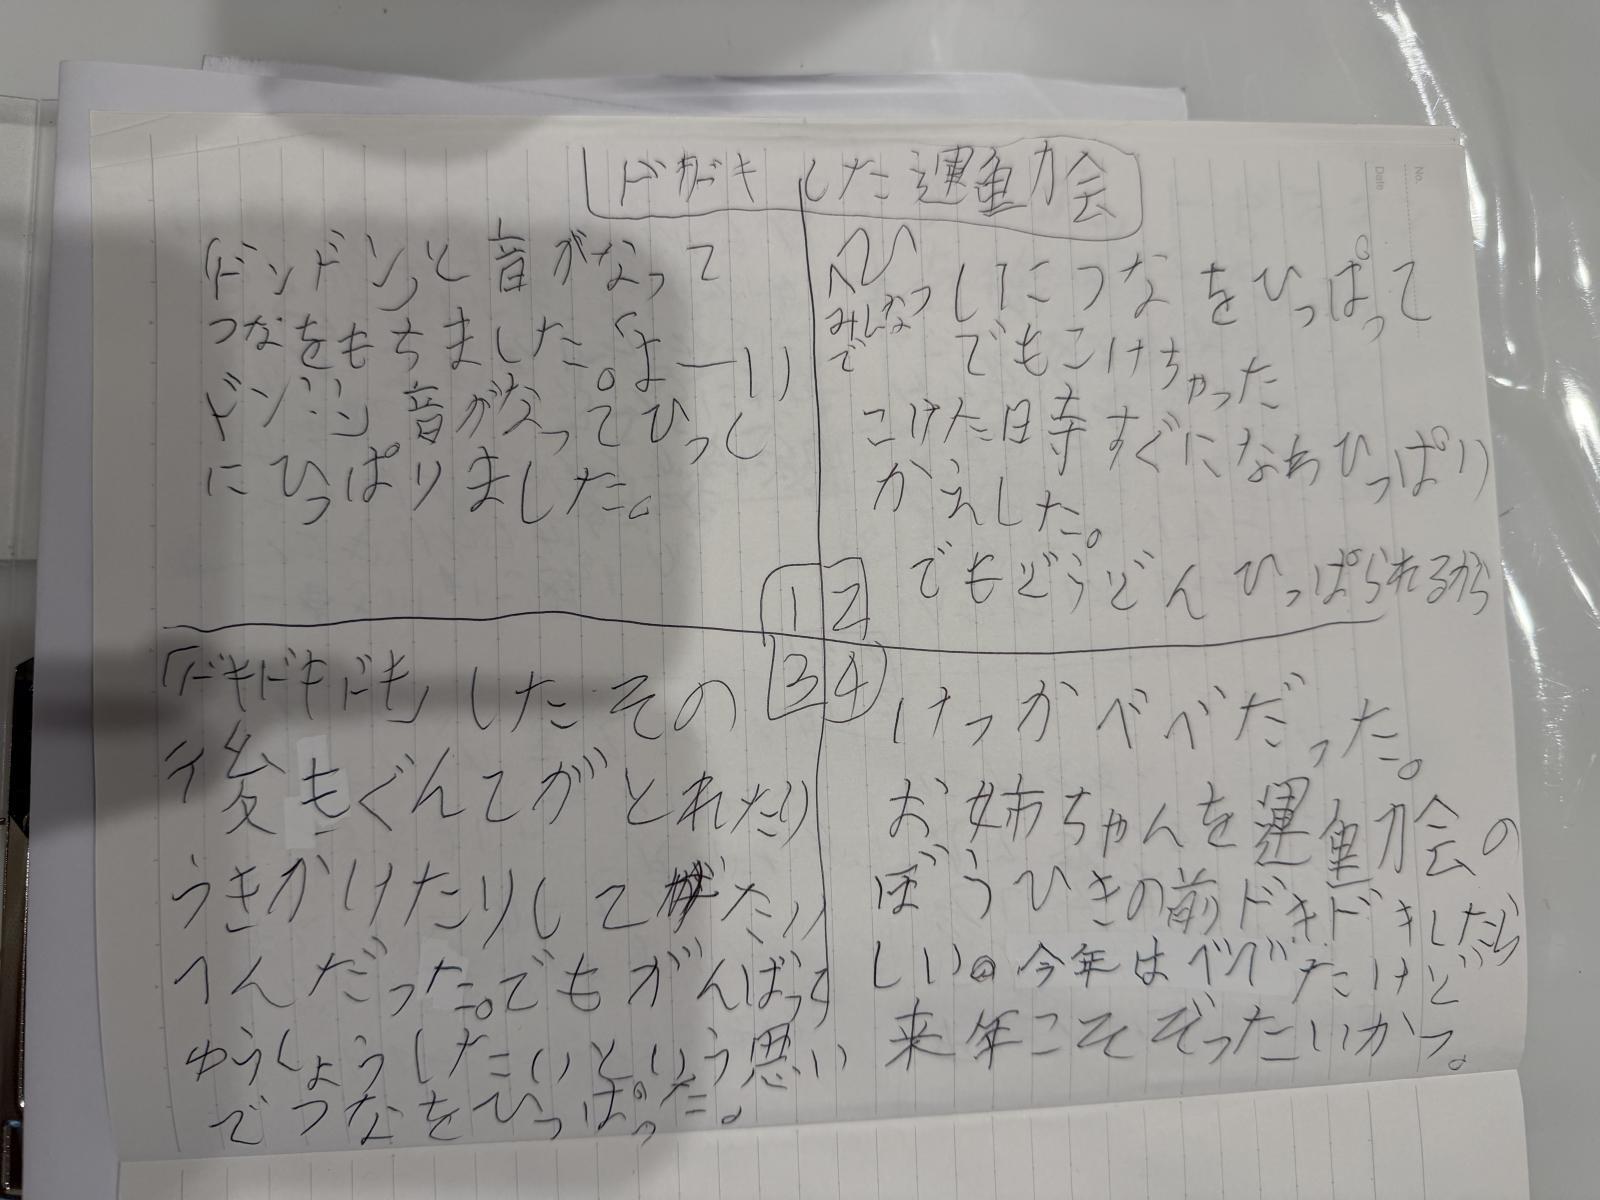 ドキドキした運動会
「ドンドン」と音がなって
つなをもちました。「よーい
ドン!!」音がなってひっし
にひっぱりました。
1
ひっしにつなをひっぱって
みんなで
でもこけちゃった
こけた時すぐになわひっぱり
かえした。
でもどうどんひっぱられるから
2
「ドキドキドキ」したその
後もぐんてがとれたり
うきかけたりしてたい
へんだった。でもがんばって
ゆうしょうしたいという思い
でつなをひっぱった。
3
けっかべべだった。
お姉ちゃんを運動会の
ぼうひきの前ドキドキしたら
しい。今年はべべだたけど
来年こそぞったいかつ。
4
No.
Date